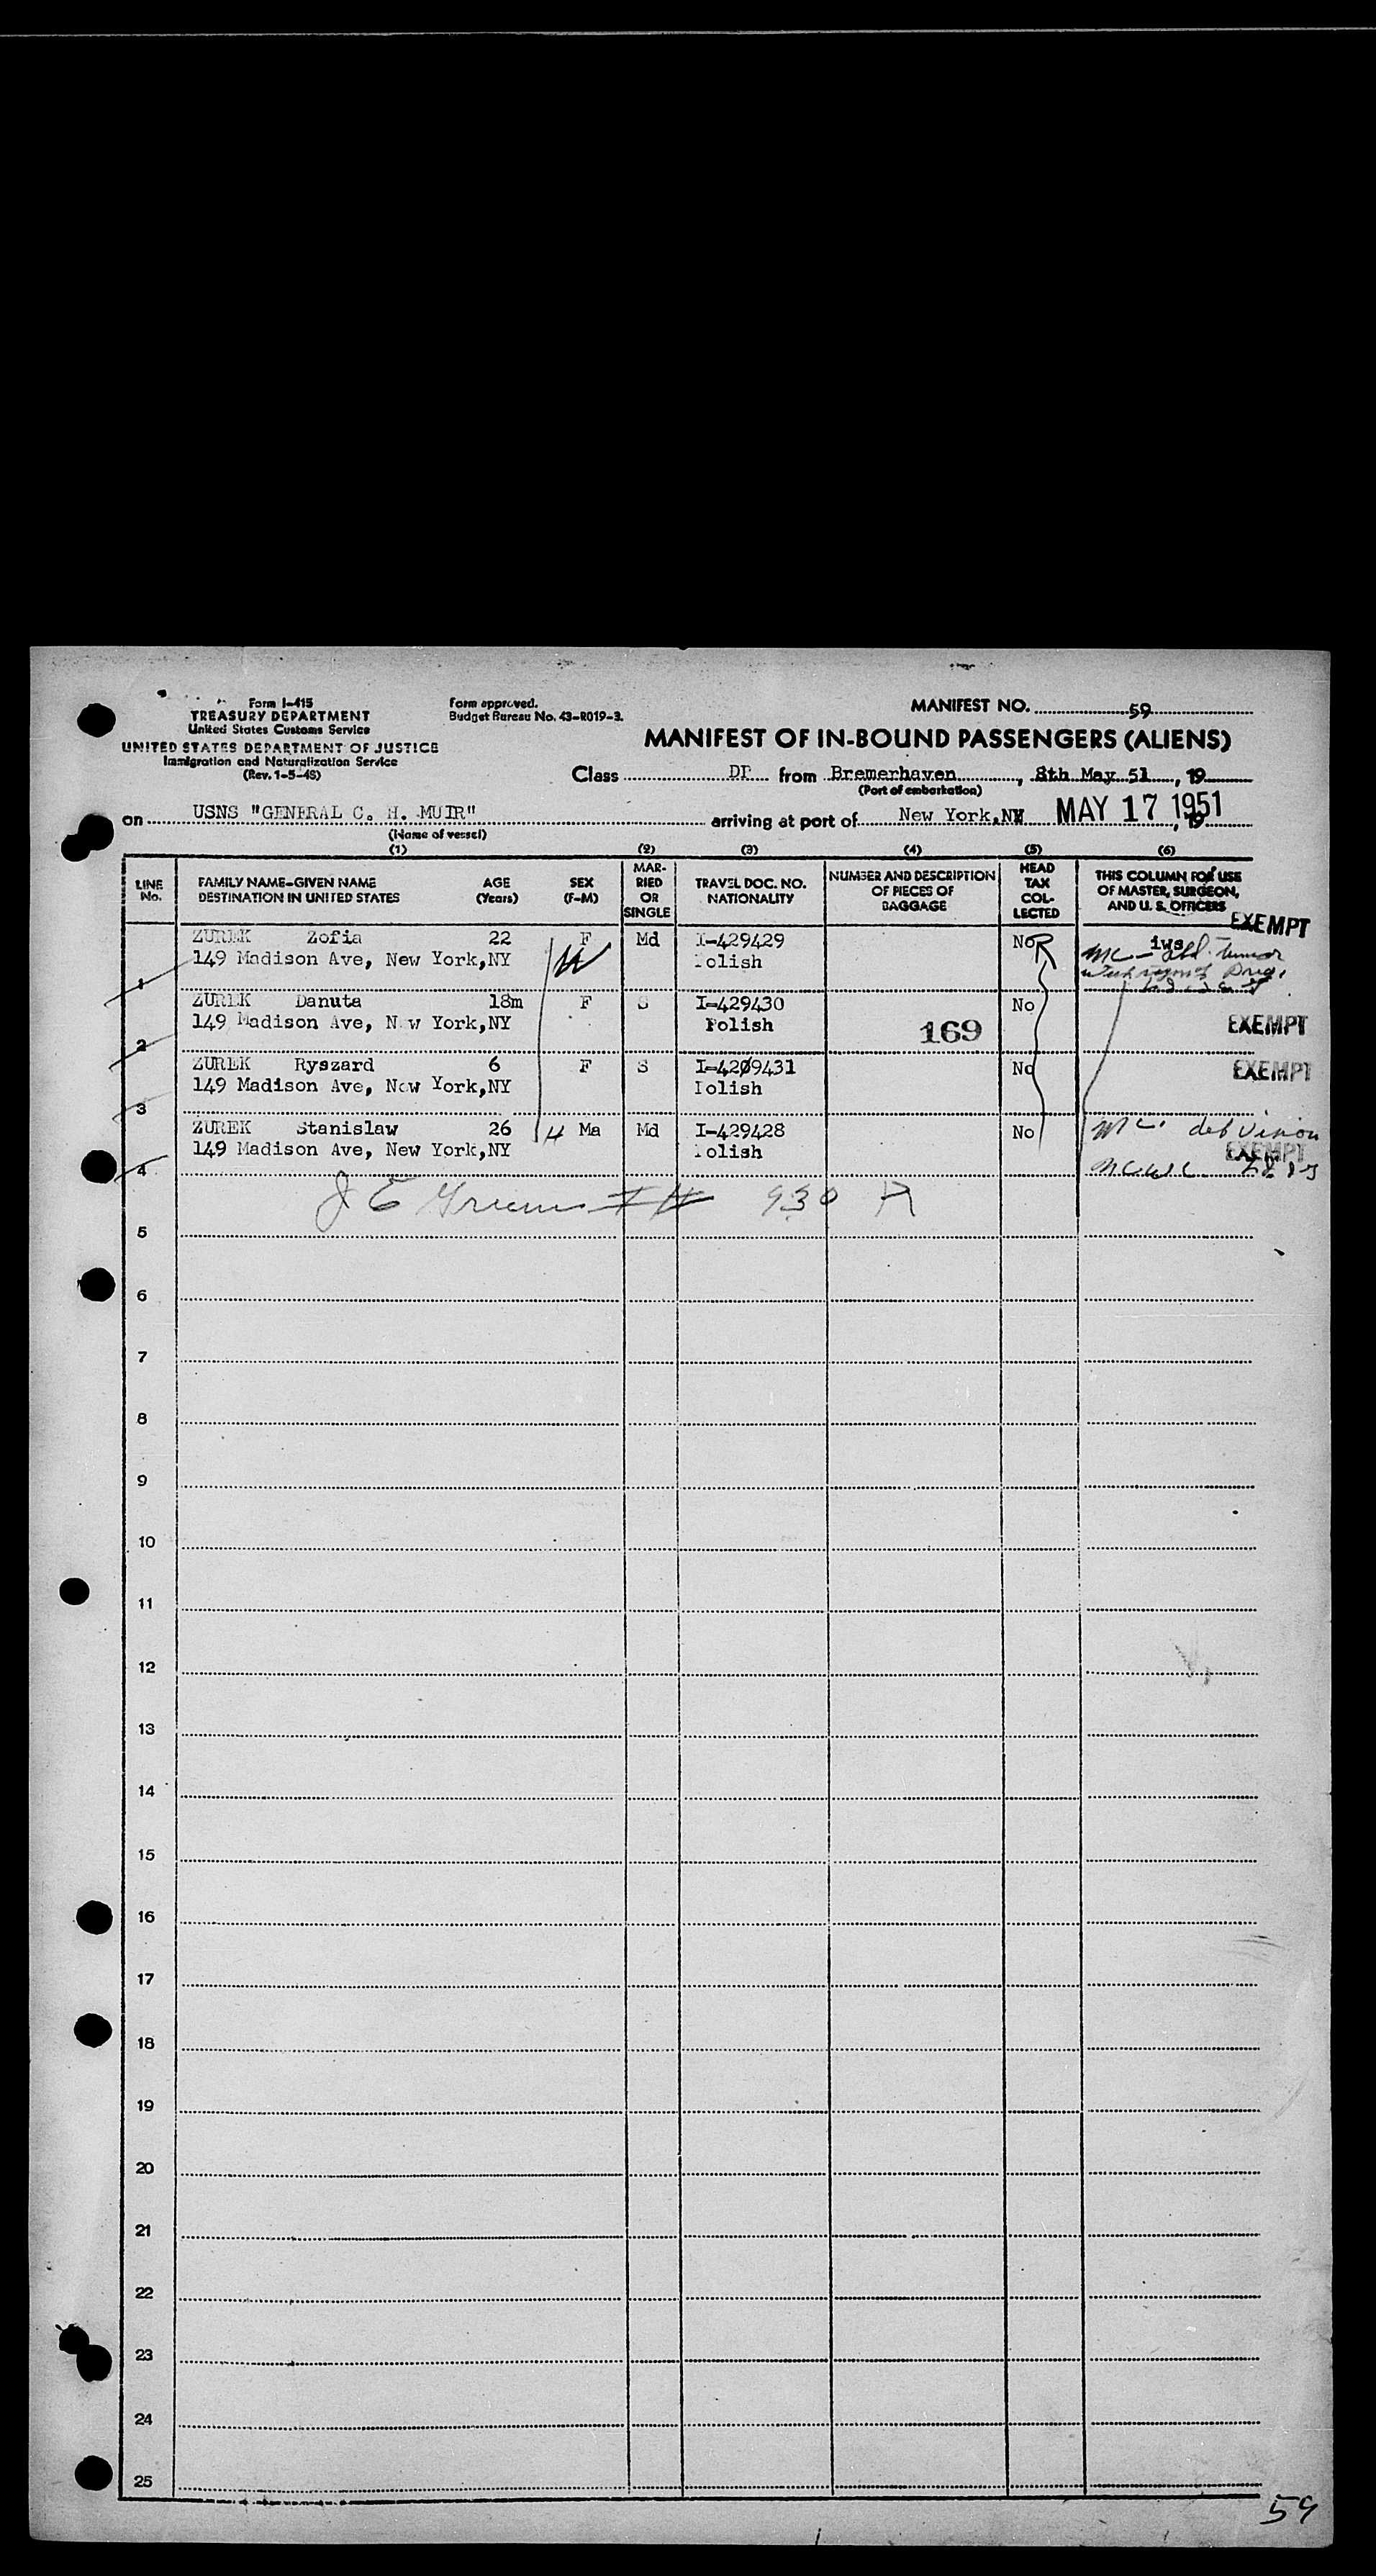 Form I-415
TREASURY DEPARTMENT
United States Customs Service
UNITED STATES DEPARTMENT OF JUSTICE
Immigration and Naturalization Service
(Rev. 1-5-48)
Form approved.
Budget Bureau No. 43-R019-3.
MANIFEST NO. 59
MANIFEST OF IN-BOUND PASSENGERS (ALIENS)
Class DP from Bremerhaven, 8th May 51, 19
(Port of embarkation)
on USNS "GENERAL C. H. MUIR" arriving at port of New York,NY MAY 17 1951, 19
(Name of vessel)
(1) (2) (3) (4) (5) (6)
LINE No. FAMILY NAME-GIVEN NAME DESTINATION IN UNITED STATES AGE (Years) SEX (F-M) MARRIED OR SINGLE TRAVEL DOC. NO. NATIONALITY NUMBER AND DESCRIPTION OF PIECES OF BAGGAGE HEAD TAX COLLECTED THIS COLUMN FOR USE OF MASTER, SURGEON, AND U. S. OFFICERS
EXEMPT
ZUREK Zofia 22 F Md I-429429 No R iws
149 Madison Ave, New York,NY W Polish
1
ZUREK Danuta 18m F S I-429430 No
149 Madison Ave, New York,NY Polish 169 EXEMPT
2
ZUREK Ryszard 6 F S I-4209431 No EXEMPT
149 Madison Ave, New York,NY Polish
3
ZUREK Stanislaw 26 4 Ma Md I-429428 No Mc. def vision
149 Madison Ave, New York,NY Polish EXEMPT
4 NCWC
J E 930 A
5
6
7
8
9
10
11
12
13
14
15
16
17
18
19
20
21
22
23
24
25
59